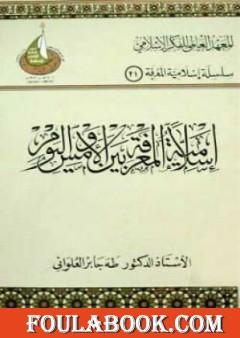 المعهد العالمي للفكر الإسلامي
سلسلة إسلامية المعرفة (٢١)
إسلامية المعرفة بين الأمس واليوم
الأستاذ الدكتور طه جابر العلواني
FOULABOOK.COM